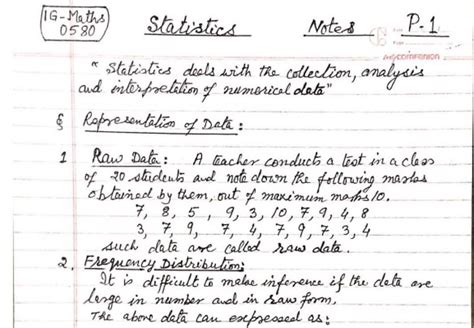 IG-Maths
0580
Statistics Notes P-1
"Statistics deals with the collection, analysis
and interpretation of numerical data"
§ Representation of Data:
1 Raw Data: A teacher conducts a test in a class
of 20 students and note down the following marks
obtained by them, out of maximum marks 10.
7, 8, 5, 9, 3, 10, 7, 9, 4, 8
3, 7, 9, 7, 4, 7, 9, 7, 3, 4
such data are called raw data.
2. Frequency Distribution:
It is difficult to make inference if the data are
large in number and in raw form.
The above data can expressed as: